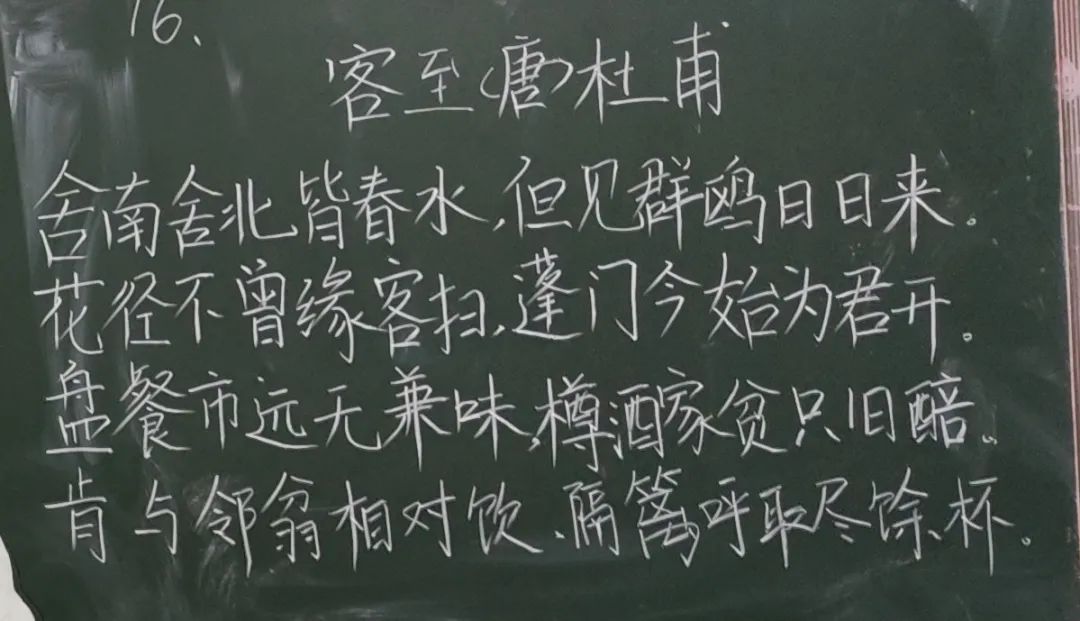 16、
客至(唐)杜甫
舍南舍北皆春水,但见群鸥日日来。
花径不曾缘客扫,蓬门今始为君开。
盘餐市远无兼味,樽酒家贫只旧醅。
肯与邻翁相对饮、隔篱呼取尽馀杯。